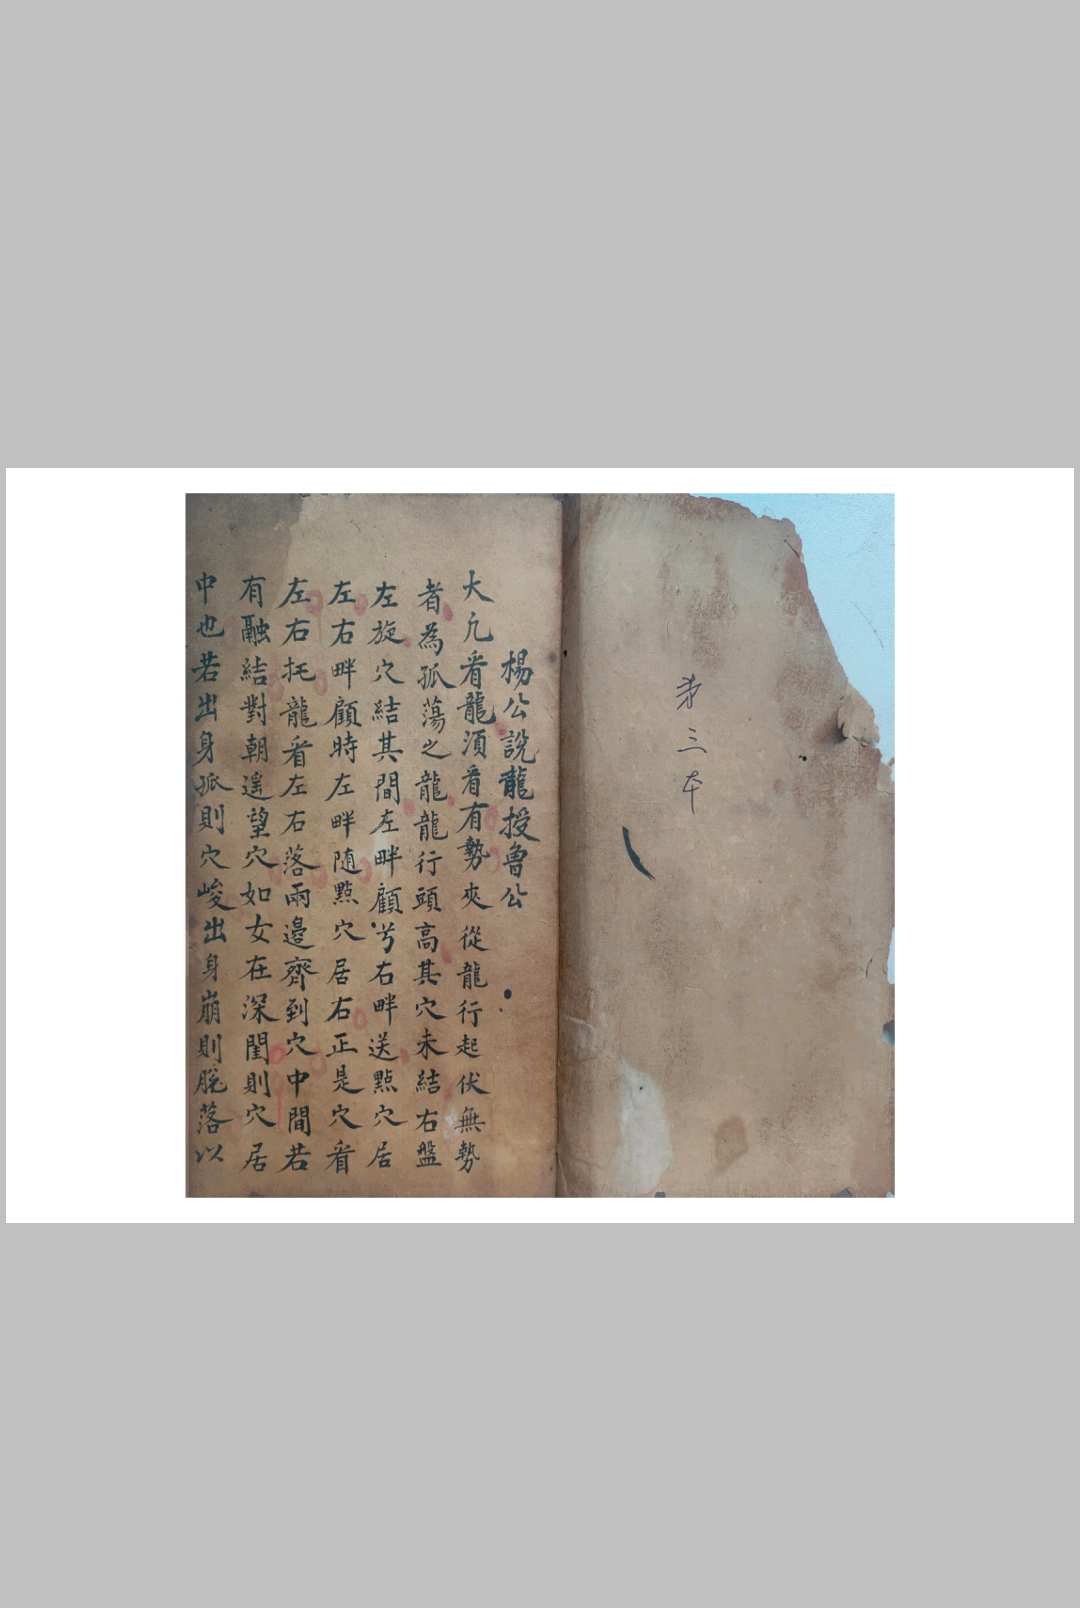 第三本
楊公說龍授魯公
大凢看龍須看有勢夾從龍行起伏無勢
者為孤蕩之龍龍行頭高其穴未結右盤
左旋穴結其間左畔顧兮右畔送點穴居
左右畔顧時左畔隨點穴居右正是穴看
左右托龍看左右落兩邊齊到穴中間若
有融結對朝遙望穴如女在深閨則穴居
中也若出身孤則穴峻出身崩則脫落以